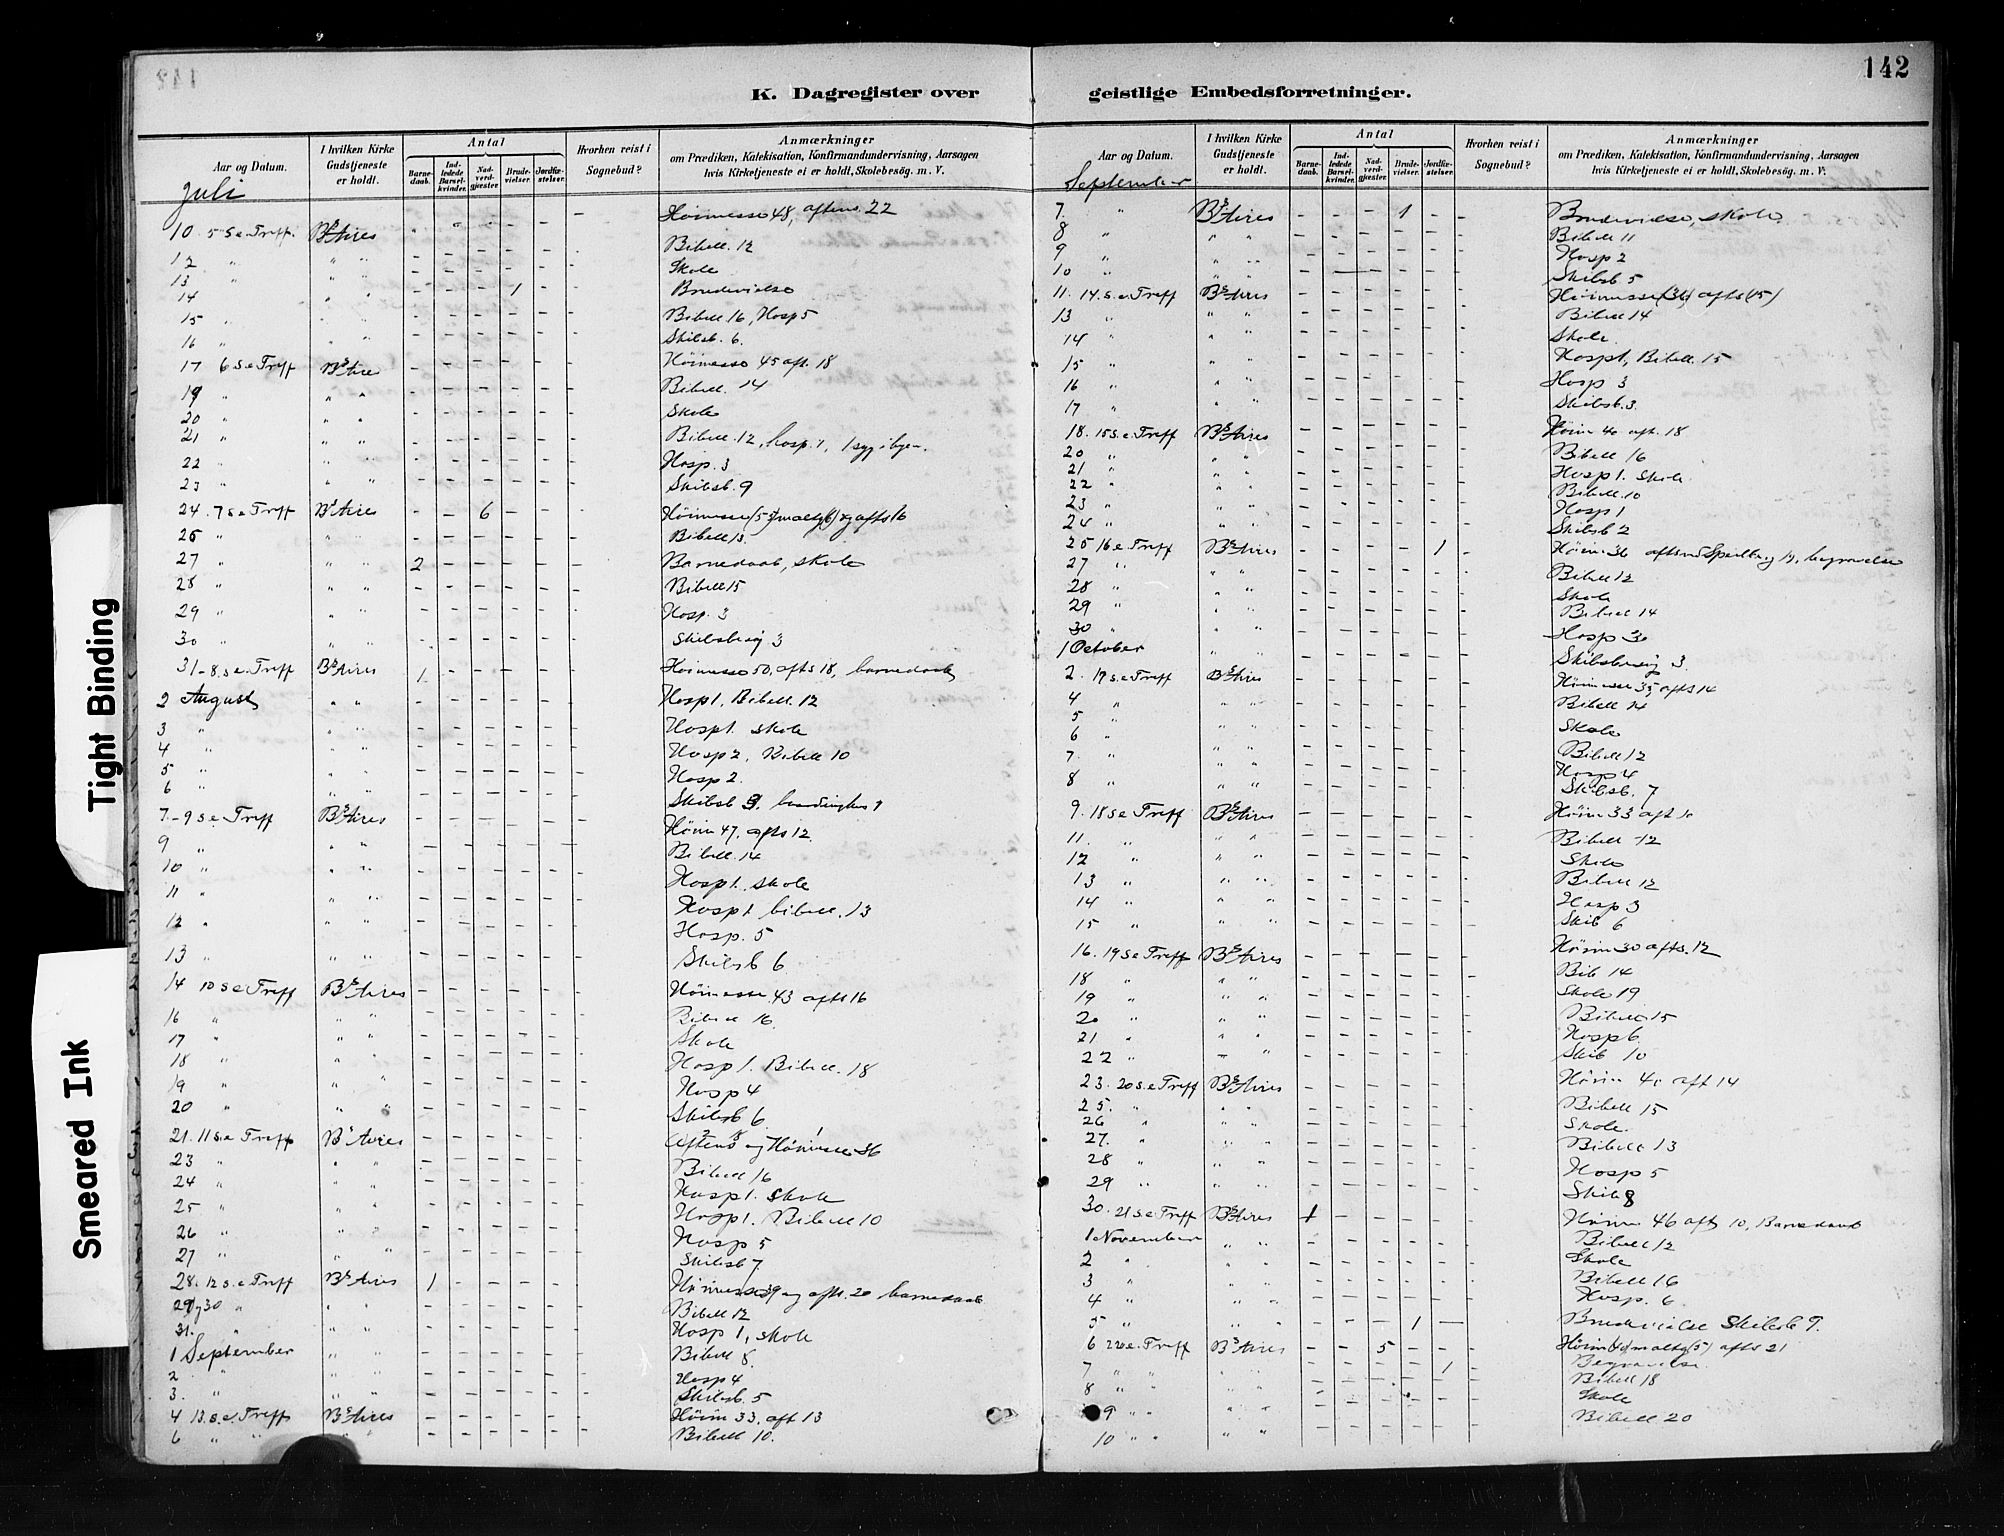 142
K. Dagregister over geistlige Embedsforretninger.
Aar og Datum. I hvilken Kirke Gudstjeneste er holdt. Antal Barnedaab. Indledede Barselkvinder. Nadverdgjæster. Brudevielser. Jordfæstelser. Hvorhen reist i Sognebud? Anmærkninger om Prædiken, Katekisation, Konfirmandundervisning, Aarsagen hvis Kirketjeneste ei er holdt, Skolebesøg. m. V.
Juli
10 5 S e Treff. Bs Aires - - - - - - Høimesse 48, aftens. 22
12 " " " - - - - - - Bibell. 12
13 " " " - - - - - - Skole
14 " " " - - - 1 - - Brudevielse
15 " " " - - - - - - Bibell 16, Hosp 5
16 " " " - - - - - - Skilsb. 6.
17 6 S e Treff Bs Aire - - - - - - Høimesse 45 aft. 18
19 " " " - - - - - - Bibell. 14
20 " " " - - - - - - Skole
21 " " " - - - - - - Bibell. 12, hosp. 1, 1 syg i byen.
22 " " " - - - - - - Hosp. 3
23 " " " - - - - - - Skilsb. 9
24. 7 S e Treff Bs Aires - - 6 - - - Høimesse (53) maltg (6) og afts 16
25 " " " - - - - - - Bibell 13.
27 " " " 2 - - - - - Barnedaab, skole
28 " " " - - - - - - Bibell 15
29 " " " - - - - - - Hosp. 3
30 " " " - - - - - - Skibsbesøg 3
31 - 8. s. e Treff Bs Aires 1 - - - - - Høimesse 50, afts 18, barnedaab
2 August " " - - - - - - Hosp 1, Bibell. 12
3 " " " - - - - - - Hosp 1. skole
4 " " " - - - - - - Hosp 2, Bibell 10
5 " " " - - - - - - Hosp 2.
6 " " " - - - - - - Skilsb 3.
7 - 9 s e Treff Bs Aires - - - - - - Høim 47, afts 12.
9 " " " - - - - - - Bibell. 14
10 " " " - - - - - - Hosp 1. skole
11 " " " - - - - - - Hosp 1 bibell. 13
12 " " " - - - - - - Hosp. 5
13 " " " - - - - - - Skilsb 6
14 10 s e Treff Bs Aires - - - - - - Høimesse 43 afts 16
16 " " " - - - - - - Bibell 16.
17 " " " - - - - - - Skole
18 " " " - - - - - - Hosp 1. Bibell. 18
19 " " " - - - - - - Hosp 4
20 " " " - - - - - - Skilsb 6.
21. 11 s. e Treff Bs Aires - - - - - - Aftens og Høimesse 36
23 " " " - - - - - - Bibell 16
24 " " " - - - - - - Hosp 1. skole
25 " " " - - - - - - Hosp 1. Bibell 10
26 " " " - - - - - - Hosp 5
27 " " " - - - - - - Skilsb 7.
28. 12 s. e Treff Bs Aires 1 - - - - - Høimesse 39 og aft. 20 barnedaab
29 og 30 " " " - - - - - - Bibell 12
31. " " " - - - - - - Hosp 1, skole
1 September " " - - - - - - Bibell 8.
2 " " " - - - - - - Hosp 4
3. " " " - - - - - - Skilsb. 5
4 13. s. e Treff Bs Aires - - - - - - Høim 33, aft 13
6 " " " " - - - - - - Bibell 10.
September
7. " Bs Aires - - - 1 - - Brudevielse, skole
8 " " " - - - - - - Bibell 11
9 " " " - - - - - - Hosp 2
10 " " " - - - - - - Skilsb 5
11. 14. s. e Treff Bs Aires - - - - - - Høimesse (36) afts (15)
13 " " " - - - - - - Bibell 14
14 " " " - - - - - - Skole.
15 " " " - - - - - - Hosp 1, Bibell. 15
16 " " " - - - - - - Hosp 3
17 " " " - - - - - - Skilsb. 3.
18. 15 s. e Treff Bs Aires - - - - - - Høim 40 aft. 18
20 " " " - - - - - - Bibell 16
21 " " " - - - - - - Hosp 1. Skole
22 " " " - - - - - - Bibell. 10
23 " " " - - - - - - Hosp 1
24 " " " - - - - - - Skilsb 2
25 16 e Treff Bs Aires - - - - 1 - Høim 36 begravelse
27 " " " - - - - - - Bibell 12
28 " " " - - - - - - Skole
29 " " " - - - - - - Bibell 14
30 " " " - - - - - - Hosp 30
1 October " " - - - - - - Skibsbesøg 3.
2. 17 s. e Treff Bs Aires - - - - - - Høimesse 35 afts 14
4 " " " - - - - - - Bibell 14
5 " " " - - - - - - Skole
6 " " " - - - - - - Bibell 12
7. " " " - - - - - - Hosp 4
8 " " " - - - - - - Skilsb. 7
9. 18 s e Treff Bs Aires - - - - - - Høim 33 aft 10
11. " " " - - - - - - Bibell 12
12 " " " - - - - - - Skole
13 " " " - - - - - - Bibell 12
14 " " " - - - - - - Hosp 3
15 " " " - - - - - - Skib 6
16. 19 s e Treff Bs Aires - - - - - - Høim 30 afts. 12
18 " " " - - - - - - Bib 14
19 " " " - - - - - - Skole 19
20 " " " - - - - - - Bibell 15
21 " " " - - - - - - Hosp 6.
22 " " " - - - - - - Skib 10
23. 20 s. e Treff Bs Aires - - - - - - Høim 40 aft 14
25. " " " - - - - - - Bibell 15
26 " " " - - - - - - Skole.
27. " " " - - - - - - Bibell 13
28 " " " - - - - - - Hosp 5
29 " " " - - - - - - Skib 8
30. 21 s e Treff Bs Aires 1 - - - - - Høim 46 aft 10, Barnedaab
1 November " " - - - - - - Bibell 12
2 " " " - - - - - - Skole
3 " " " - - - - - - Bibell 16
4 " " " - - - - - - Hosp. 6.
5 " " " - - - 1 - - Brudevielse Skilsb 9.
6 22 s e Treff Bs Aires - - 5 - - - Høim (40) maltg (5) afts 21
7 " " " " - - - - 1 - Begravelse.
8 " " " " - - - - - - Bibell 18
9 " " " " - - - - - - Skole
10 " " " " - - - - - - Bibell 20
Tight Binding
Smeared Ink